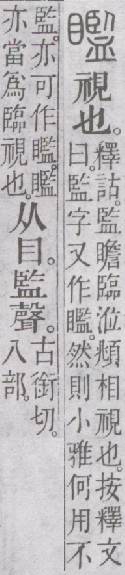 䀍視也。釋詁。監瞻臨涖頫相視也。按釋文
曰。監字又作䀍。然則小雅何用不
監。亦可作䀍。䀍
亦當爲臨視也。从目。監聲。古銜切。
八部。